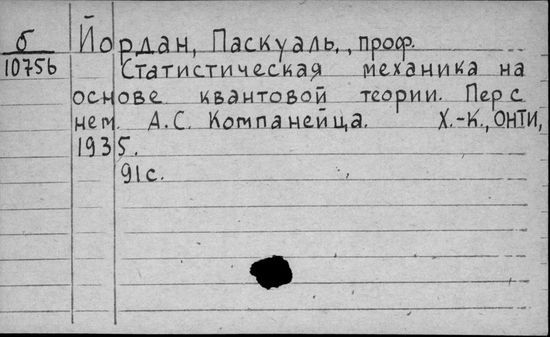 б Йордан, Паскуаль,, проф.
10756 Статистическая механика на
основе квантовой теории. Пер с
нем. А.С. Компанейца. Х.-К., ОНТИ,
1935.
91 с.